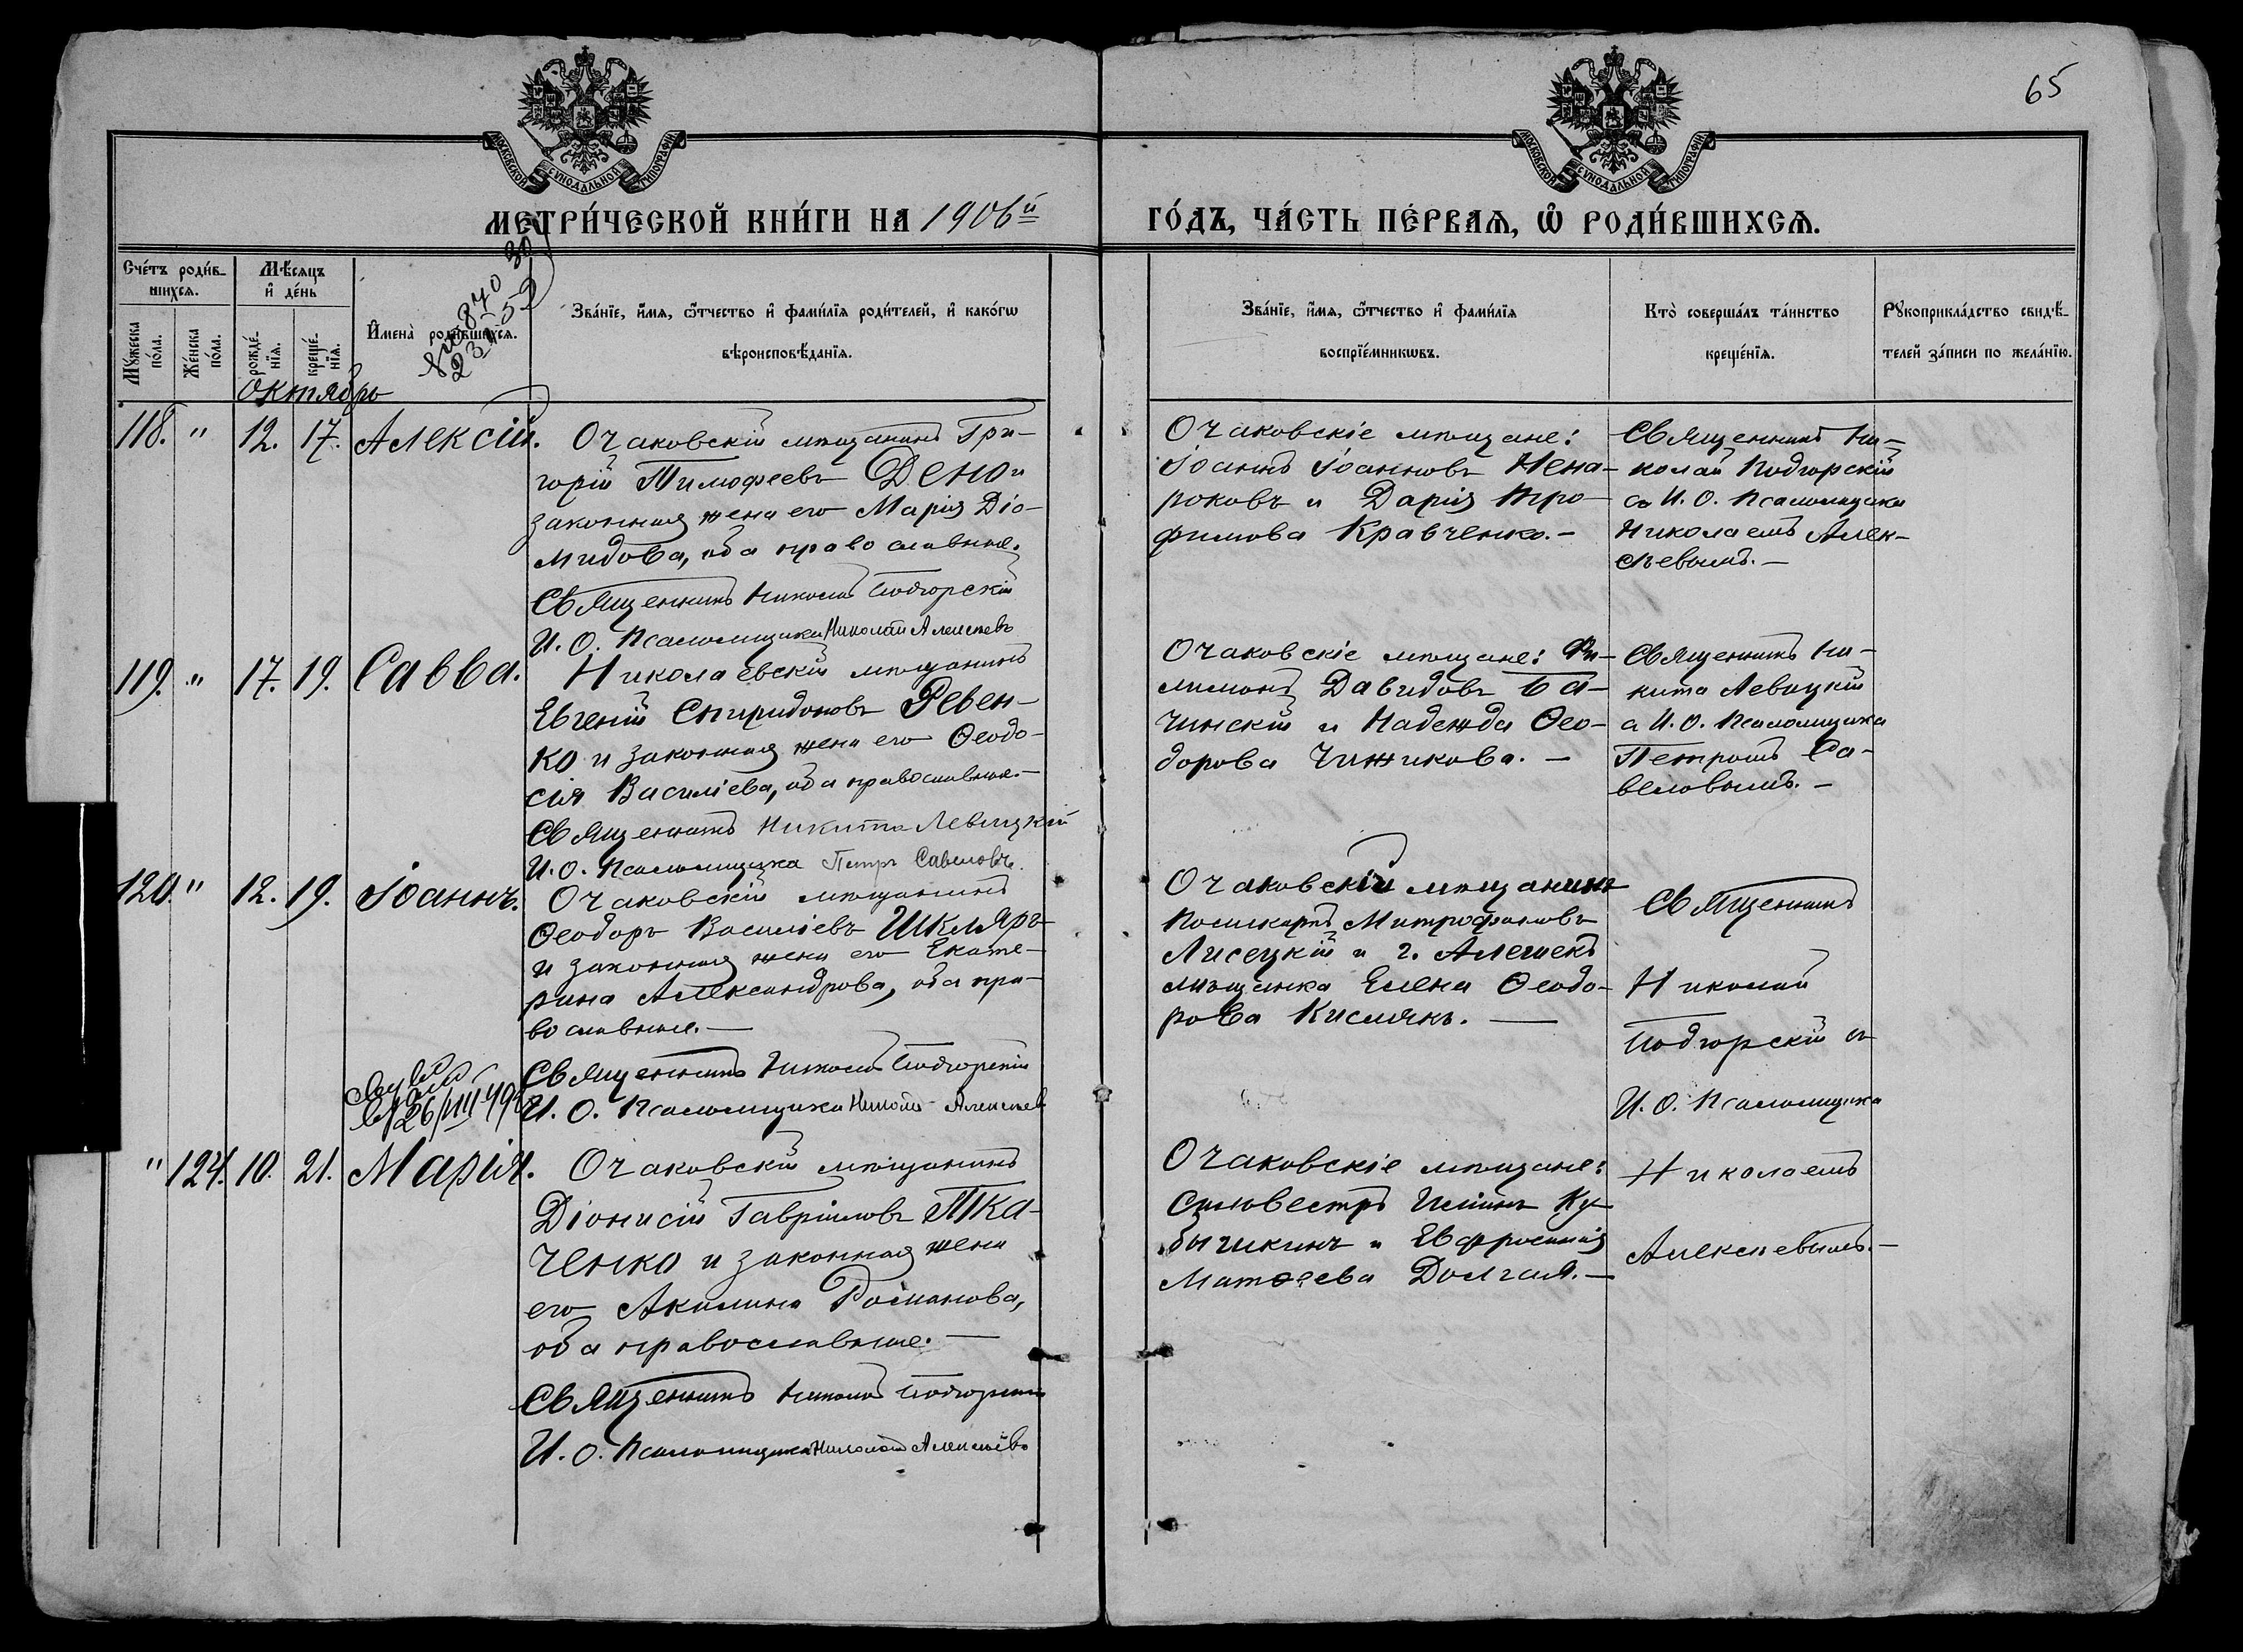 65
МОСКОВСКОЙ СѴНОДАЛЬНОЙ ТИПОГРАФІИ
МОСКОВСКОЙ СѴНОДАЛЬНОЙ ТИПОГРАФІИ
МЕТРИ́ЧЕСКОЙ КНИ́ГИ НА 1906й
ГО́ДЪ, ЧА́СТЬ ПЕ́РВАЯ, Ѽ РОДИ́ВШИХСЯ.
Сче́тъ роди́в-
шихся.
Мѣ́сяцъ
и҆ де́нь
Мꙋ́жеска по́ла.
Же́нска по́ла.
рожде́нїя.
креще́нїя.
И҆мена̀ роди́вшихся.
Зва́нїе, и҆́мя, ѻ҆́тчество и҆ фами́лїя роди́телей, и҆ како́гѡ
вѣроисповѣ́данїя.
Зва́нїе, и҆́мя, ѻ҆́тчество и҆ фами́лїя
воспрїе́мникѡвъ.
Кто̀ соверша́лъ та́инство
креще́нїя.
Рꙋкоприкла́дство свидѣ́-
телей за́писи по жела́нїю.
Октябрь
118. " 12. 17. Алексій.
Очаковскій мѣщанинъ Гри-
горій Тимофеевъ Дено и
законная жена его Марія Діо-
мидова, оба православные.
Священникъ Николай Подгорскій
И. О. Псаломщика Николай Алексѣевъ
Очаковскіе мѣщане:
Іоаннъ Іоанновъ Нена-
роковъ и Дарія Тро-
фимова Кравченко. –
Священникъ Ни-
колай Подгорскій
съ И. О. Псаломщика
Николаемъ Алек-
сѣевымъ. –
119. " 17. 19. Савва.
Николаевскій мѣщанинъ
Евгеній Спиридоновъ Ревен-
ко и законная жена его Ѳеодо-
сія Василіева, оба православные. –
Священникъ Никита Левицкій
И. О. Псаломщика Петръ Савеловъ.
Очаковскіе мѣщане: Фи-
лимонъ Давидовъ Ба-
чинскій и Надежда Ѳео-
дорова Чижикова. –
Священникъ Ни-
кита Левицкій
с И. О. Псаломщика
Петромъ Са-
веловымъ. –
120. " 12. 19. Іоаннъ.
Очаковскій мѣщанинъ
Ѳеодоръ Василіевъ Шкляръ
и законная жена его Екате-
рина Александрова, оба пра-
вославные. –
Священникъ Николай Подгорскій
И. О. Псаломщика Николай Алексѣев
Очаковскій мѣщанинъ
Поликарпъ Митрофановъ
Лисецкій и г. Алешекъ
мѣщанка Елена Ѳеодо-
рова Кислякъ. –
Священникъ
Николай
Подгорскій съ
И. О. Псаломщика
Николаемъ
Алексѣевымъ. –
" 124. 10. 21. Марія.
Очаковскій мѣщанинъ
Діонисій Гавріиловъ Тка-
ченко и законная жена
его Акилина Романова,
оба православные. –
Священникъ Николай Подгорскій
И. О. Псаломщика Николай Алексѣевъ
Очаковскіе мѣщане:
Сильвестръ Иліинъ Ку-
бышкинъ и Евфросинія
Матѳеева Долгая. –